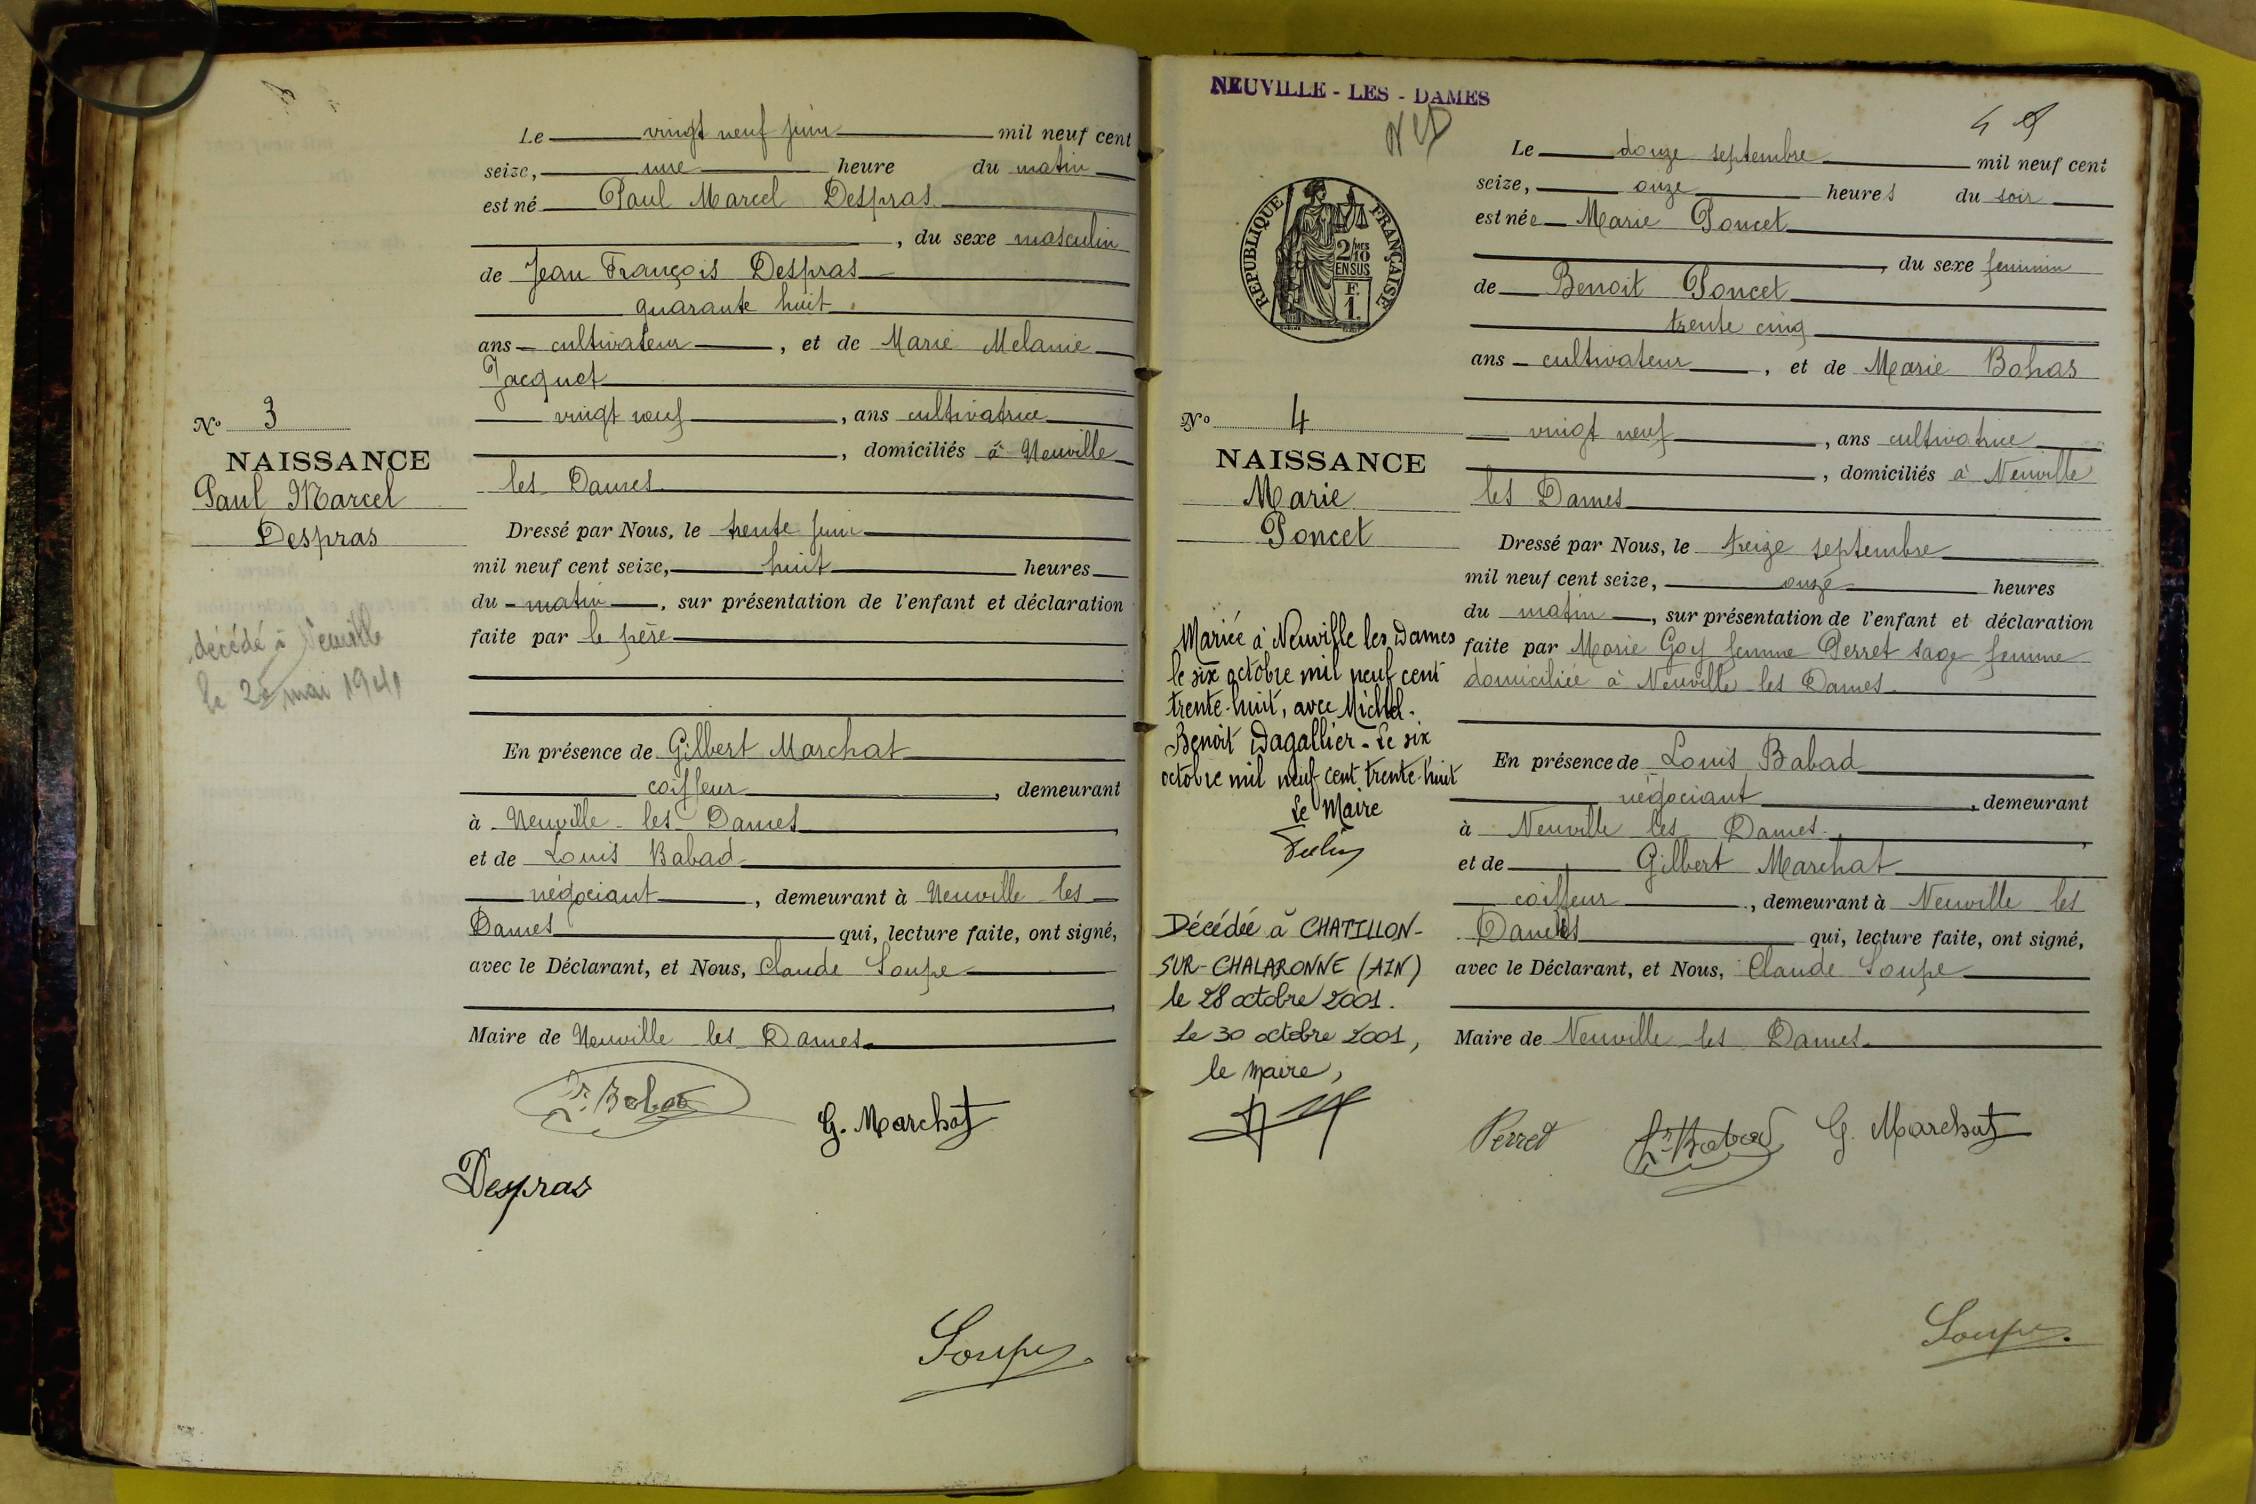 Le vingt neuf juin mil neuf cent
seize, une heure du matin
est né Paul Marcel Despras
, du sexe masculin
de Jean François Despras
quarante huit
ans cultivateur , et de Marie Melanie
Jacquet
vingt neuf , ans cultivatrice
, domiciliés à Neuville
les Dames
Dressé par Nous, le trente juin
mil neuf cent seize, huit heures
du matin , sur présentation de l'enfant et déclaration
faite par le père
En présence de Gilbert Marchat
coiffeur , demeurant
à Neuville les Dames ,
et de Louis Babad
négociant , demeurant à Neuville les
Dames qui, lecture faite, ont signé,
avec le Déclarant, et Nous, Claude Soupe
,
Maire de Neuville les Dames
Babad
G. Marchat
Despras
Soupe
No 3
NAISSANCE
Paul Marcel
Despras
décédé à Neuville
le mai 1941
NEUVILLE - LES - DAMES
NLD
4
RÉPUBLIQUE FRANÇAISE
2/10 MES
EN SUS
F.
1.
No 4
NAISSANCE
Marie
Poncet
Mariée à Neuville les Dames
le six octobre mil neuf cent
trente-huit, avec Michel-
Benoit Dagallier - Le six
octobre mil neuf cent trente-huit
Le Maire
Décédée à CHATILLON-
SUR-CHALARONNE (AIN)
le 28 octobre 2001.
Le 30 octobre 2001,
le maire,
Le douze septembre mil neuf cent
seize, onze heures du soir
est née Marie Poncet
, du sexe feminin
de Benoit Poncet
trente cinq
ans cultivateur , et de Marie Bohas
vingt neuf , ans cultivatrice
, domiciliés à Neuville
les Dames
Dressé par Nous, le treize septembre
mil neuf cent seize, onze heures
du matin , sur présentation de l'enfant et déclaration
faite par Marie Goy femme Perret sage femme
domiciliée à Neuville les Dames
En présence de Louis Babad
négociant , demeurant
à Neuville les Dames ,
et de Gilbert Marchat
coiffeur , demeurant à Neuville les
Dames qui, lecture faite, ont signé,
avec le Déclarant, et Nous, Claude Soupe
Maire de Neuville les Dames
Perret
Babad
G. Marchat
Soupe